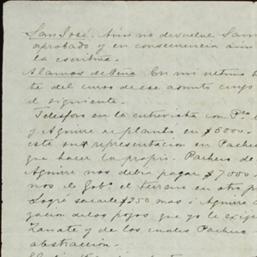 San José. Aún no devuelve Sam
aprobado y en consecuencia aún
la escritura.
Alamos de Peña. En mi último
te del curso de ese asunto cuyo
el siguiente.
Telésfor en la entrevista con Pto
y Aguirre re plantó en $6000.
este su representación en Pacheco
que hacer lo propio. Pacheco de
Aguirre nos debía pagar $7,000
nos de Gobo. el terreno en otra
Logré sacarle $250 mas a Aguirre
gación de los pozos que yo le exigí
Zarate y de los cuales Pacheco
abstracción.